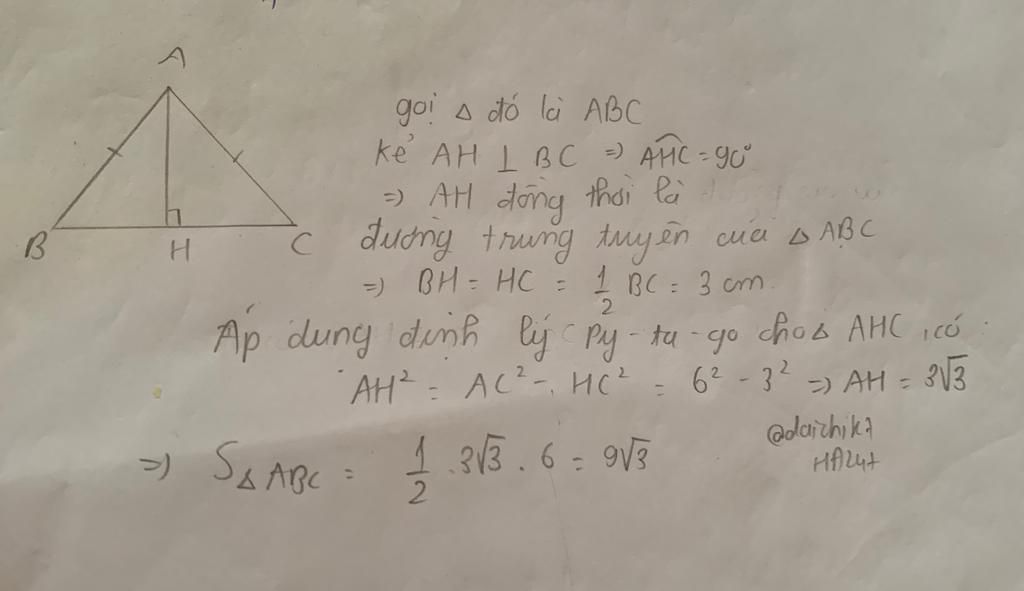 A
B
H
C
gọi △ đó là ABC
kẻ AH ⊥ BC => AHC = 90°
=> AH đồng thời là
đường trung tuyến của △ ABC
=> BH = HC = 1/2 BC = 3 cm.
Áp dung định lý Py-ta-go cho △ AHC, có:
AH² = AC² - HC² = 6² - 3² => AH = 3√3
=> S△ABC = 1/2 . 3√3 . 6 = 9√3